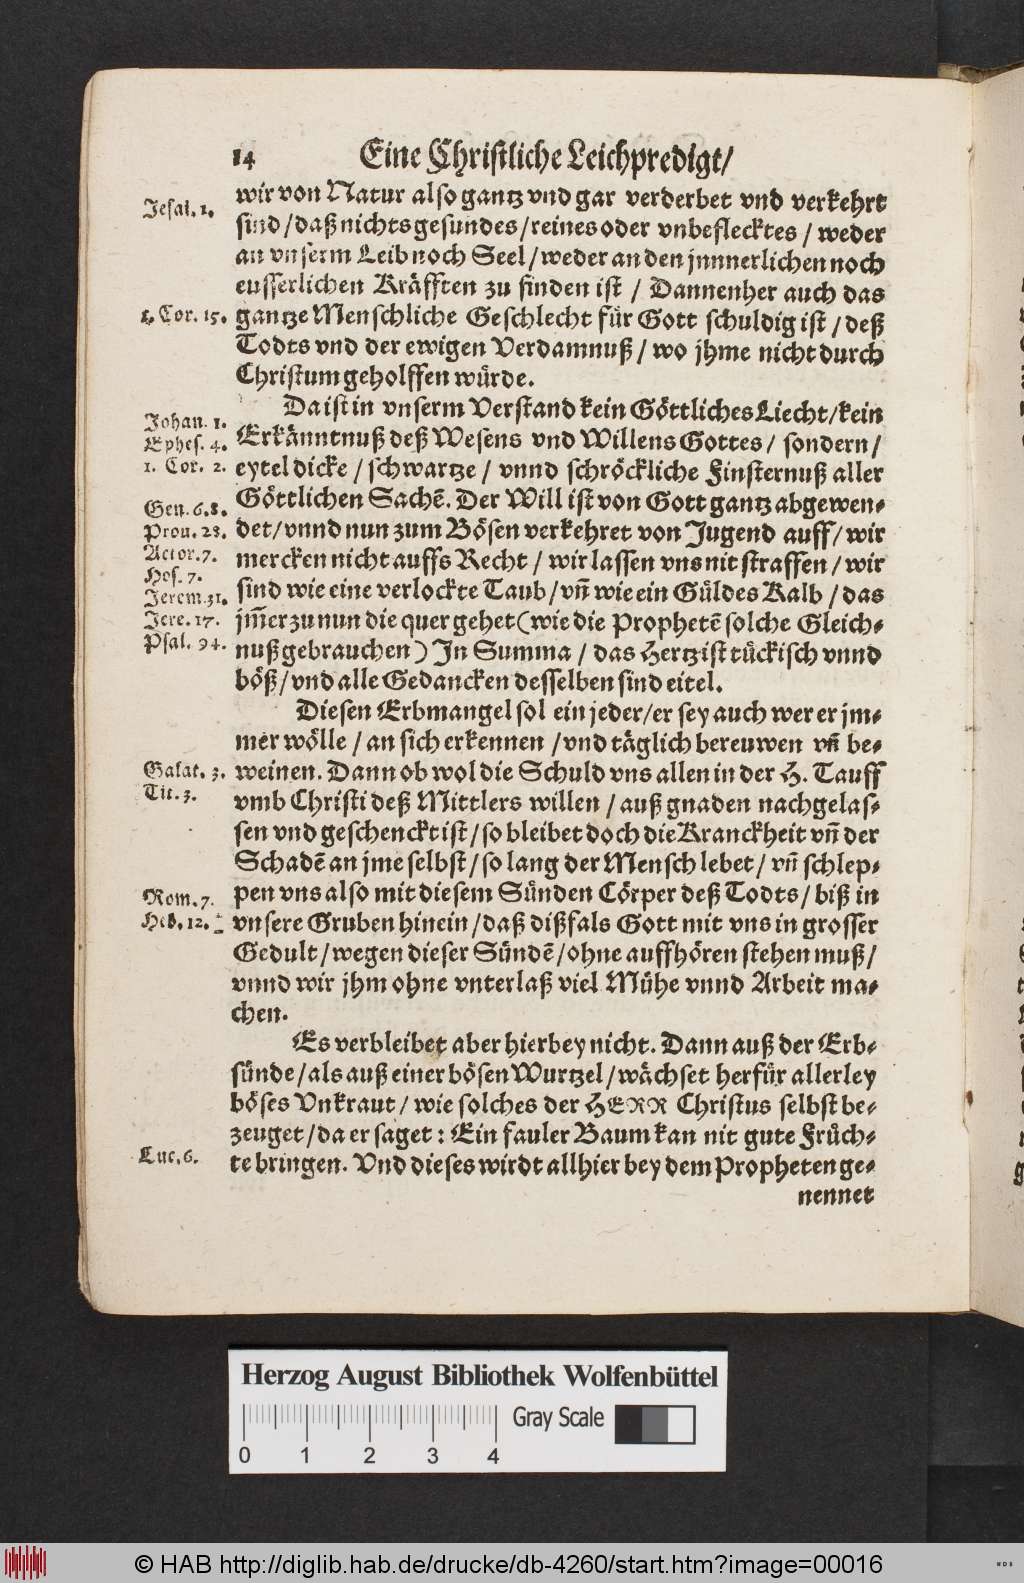 14 Eine Christliche Leichpredigt/
wir von Natur also gantz vnd gar verderbet vnd verkehrt
Jesai. 1.
sind/daß nichts gesundes/reines oder vnbeflecktes/ weder
an vnserm Leib noch Seel/weder an den jnnnerlichen noch
eusserlichen Kräfften zu finden ist / Dannenher auch das
1. Cor. 15.
gantze Menschliche Geschlecht für Gott schuldig ist/deß
Todts vnd der ewigen Verdamnuß/wo jhme nicht durch
Christum geholffen würde.
Da ist in vnserm Verstand kein Göttliches Liecht/kein
Johan. 1.
Erkänntnuß deß Wesens vnd Willens Gottes/ sondern/
Ephes. 4.
eytel dicke/schwartze/ vnnd schröckliche Finsternuß aller
1. Cor. 2.
Göttlichen Sachẽ. Der Will ist von Gott gantz abgewen-
Gen. 6.8.
det/vnnd nun zum Bösen verkehret von Jugend auff/wir
Prou. 28.
mercken nicht auffs Recht/wir lassen vns nit straffen/wir
Actor. 7.
Hos. 7.
sind wie eine verlockte Taub/vñ wie ein Güldes Kalb/das
Jerem. 31.
jm̃erzu nun die quer gehet (wie die Prophetẽ solche Gleich-
Jere. 17.
nuß gebrauchen) In Summa / das Hertz ist tückisch vnnd
Psal. 94.
böß/vnd alle Gedancken desselben sind eitel.
Diesen Erbmangel sol ein jeder/er sey auch wer er jm-
mer wölle/an sich erkennen/vnd täglich bereuwen vñ be-
weinen. Dann ob wol die Schuld vns allen in der H. Tauff
Galat. 3.
Tit. 3.
vmb Christi deß Mittlers willen/auß gnaden nachgelas-
sen vnd geschenckt ist/so bleibet doch die Kranckheit vñ der
Schadẽ an jme selbst/so lang der Mensch lebet/ vñ schlep-
pen vns also mit diesem Sünden Cörper deß Todts/biß in
Rom. 7.
vnsere Gruben hinein/daß dißfals Gott mit vns in grosser
Heb. 12.
Gedult/wegen dieser Sündẽ/ohne auffhören stehen muß/
vnnd wir jhm ohne vnterlaß viel Mühe vnnd Arbeit ma-
chen.
Es verbleibet aber hierbey nicht. Dann auß der Erb-
sünde/als auß einer bösen Wurtzel/wächset herfür allerley
böses Vnkraut/wie solches der HERR Christus selbst be-
zeuget/da er saget: Ein fauler Baum kan nit gute Früch-
te bringen. Vnd dieses wirdt allhier bey dem Propheten ge-
Luc. 6.
nennet
Herzog August Bibliothek Wolfenbüttel
Gray Scale
0 1 2 3 4
© HAB http://diglib.hab.de/drucke/db-4260/start.htm?image=00016